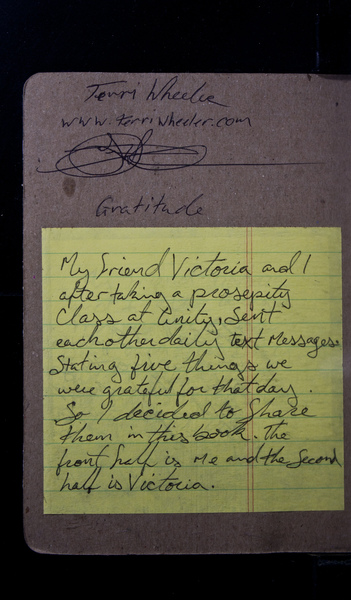 Terri Wheeler
www.terriwheeler.com
Gratitude
My friend Victoria and I
after taking a prosepity
Class at Unity, Sent
each other daily text messages
Stating five things we
were grateful for that day.
So I decided to Share
them in this book. The
front half is me and the Second
half is Victoria.